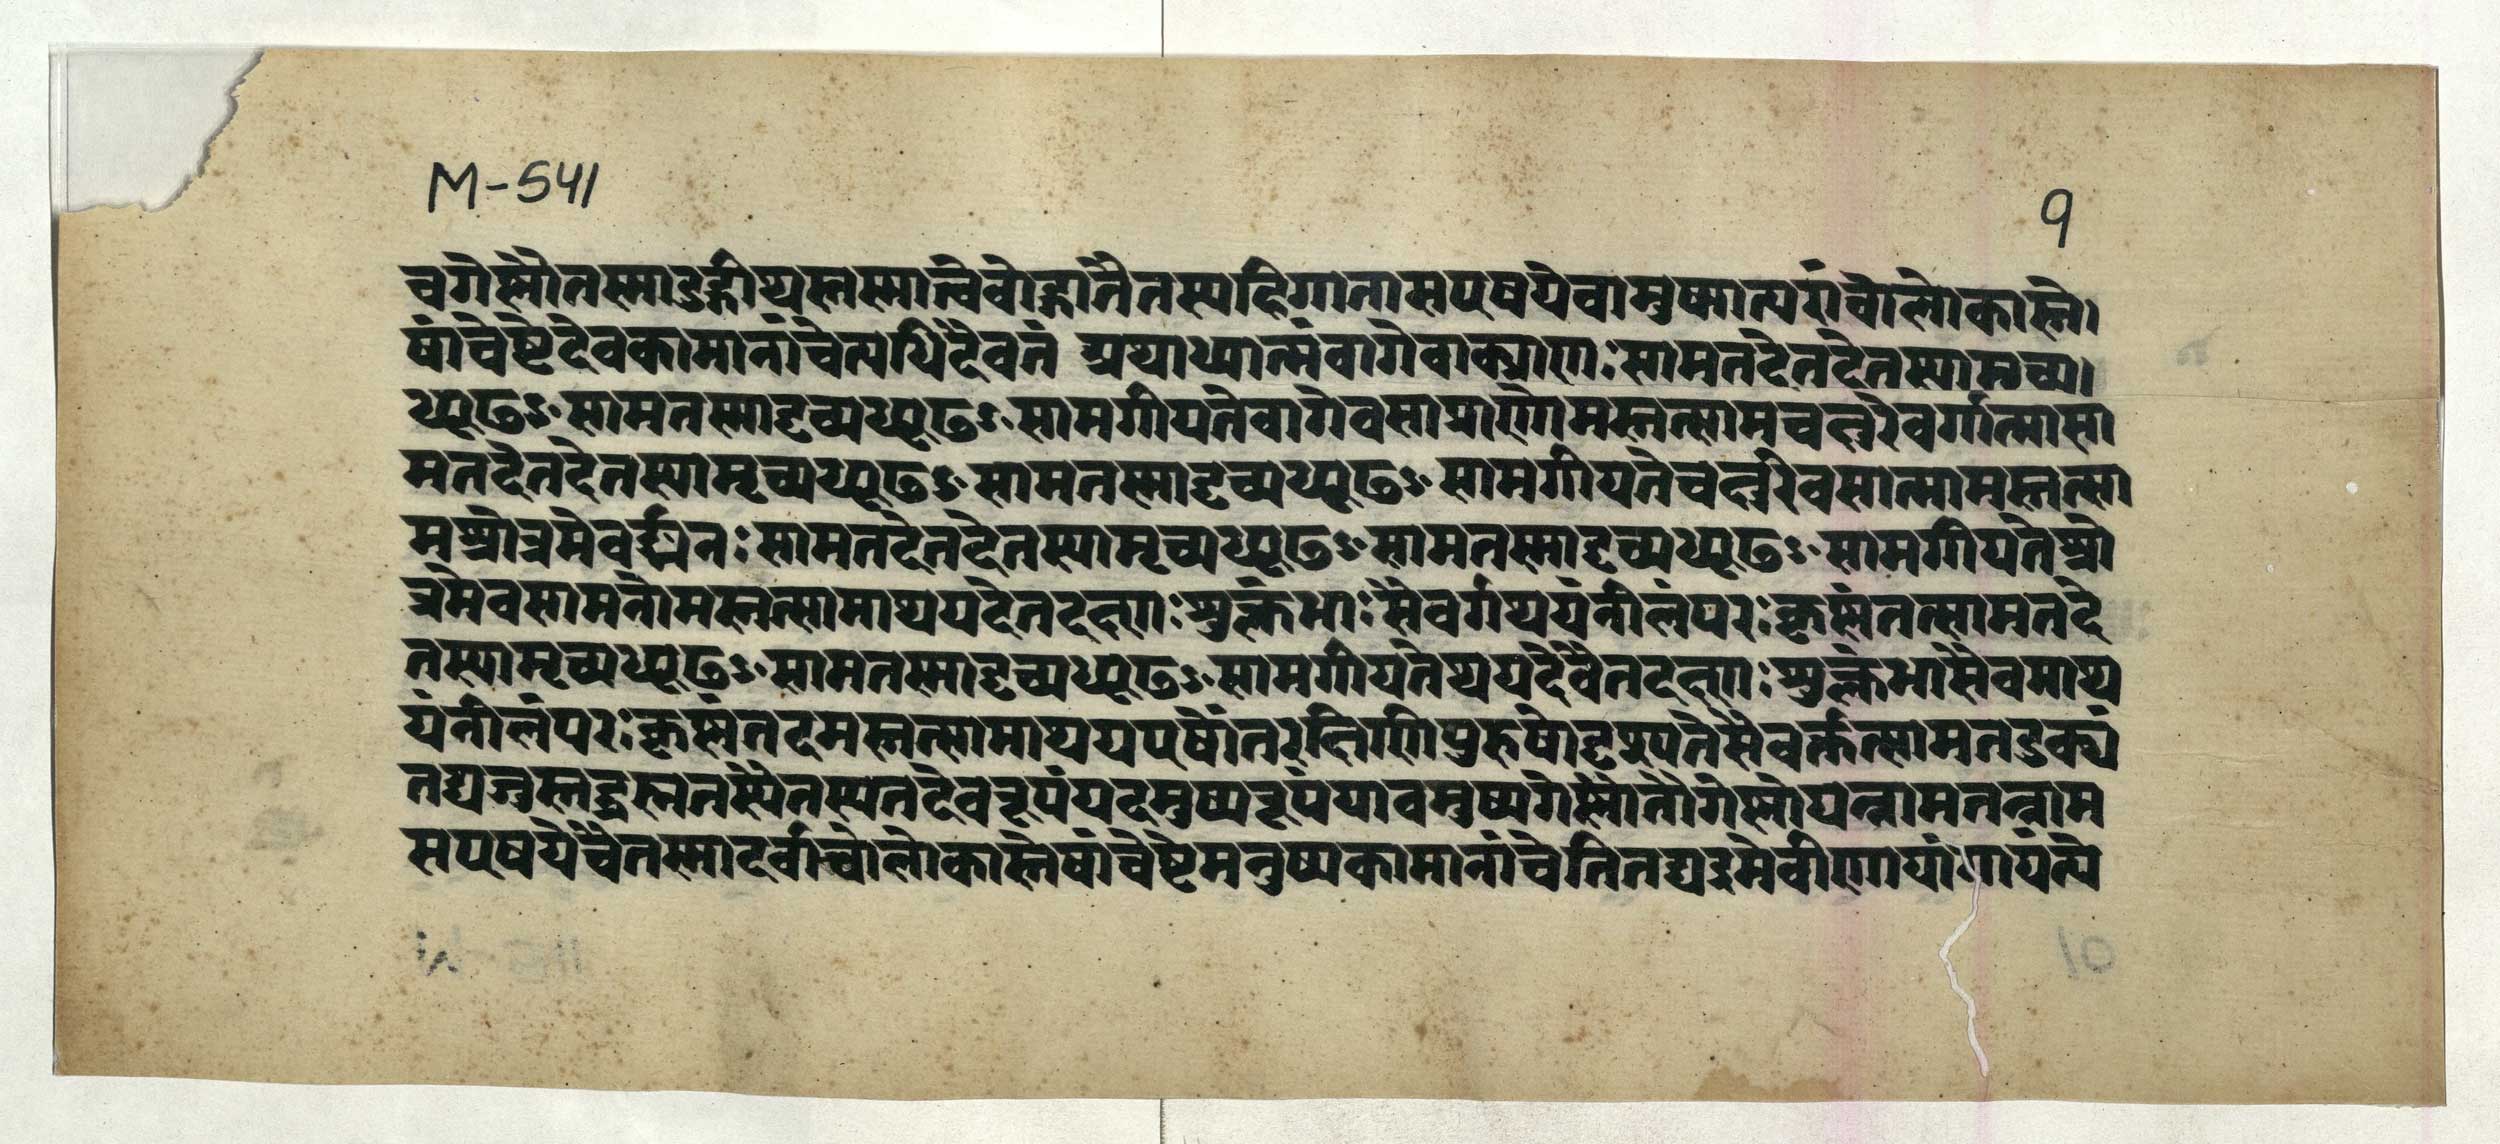 M-541
9
चगेस्नौतस्माउद्गीथस्तस्मात्त्वेवोद्गातैतस्यहिगातासएषयेचामुष्मात्परांचोलोकास्ते।
षांचेष्टेदेवकामानांचेत्यधिदैवतं अथाध्यात्मंवागेवर्क्प्राणः सामतदेतदेतस्यामृच्य।
ध्यूढꣳ सामतस्मादृच्यध्यूढꣳ सामगीयतेवागेवसाप्राणोमस्तत्सामचक्षुरेवर्गात्मासा
मतदेतदेतस्यामृच्यध्यूढꣳ सामतस्मादृच्यध्यूढꣳ सामगीयतेचक्षुरेवसात्मामस्तत्सा
मश्रोत्रमेवर्ङ्मनः सामतदेतदेतस्यामृच्यध्यूढꣳ सामतस्मादृच्यध्यूढꣳ सामगीयतेश्रो
त्रमेवसामनोमस्तत्सामाथयदेतदक्ष्णः शुक्लंभाः सैवर्गथयंनीलंपरः कृष्णंतत्सामतदे
तस्यामृच्यध्यूढꣳ सामतस्मादृच्यध्यूढꣳ सामगीयतेथयदेवैतदक्ष्णः शुक्लंभासैवसाथ
यंनीलंपरः कृष्णंतदमस्तत्सामाथयएषोंतरक्षिणीपुरुषोदृश्यतेसैवर्क्तत्सामतदुक्थं
तद्यजुस्तद्ब्रह्मतस्यैतस्यतदेवरूपंयदमुष्यरूपंयावमुष्यगेष्णौतौगेष्णौयन्नामतन्नाम
सएषयेचैतस्मादर्वाञ्चोलोकास्तेषांचेष्टेमनुष्यकामानांचेतितद्यइमेवीणायांगायंत्ये